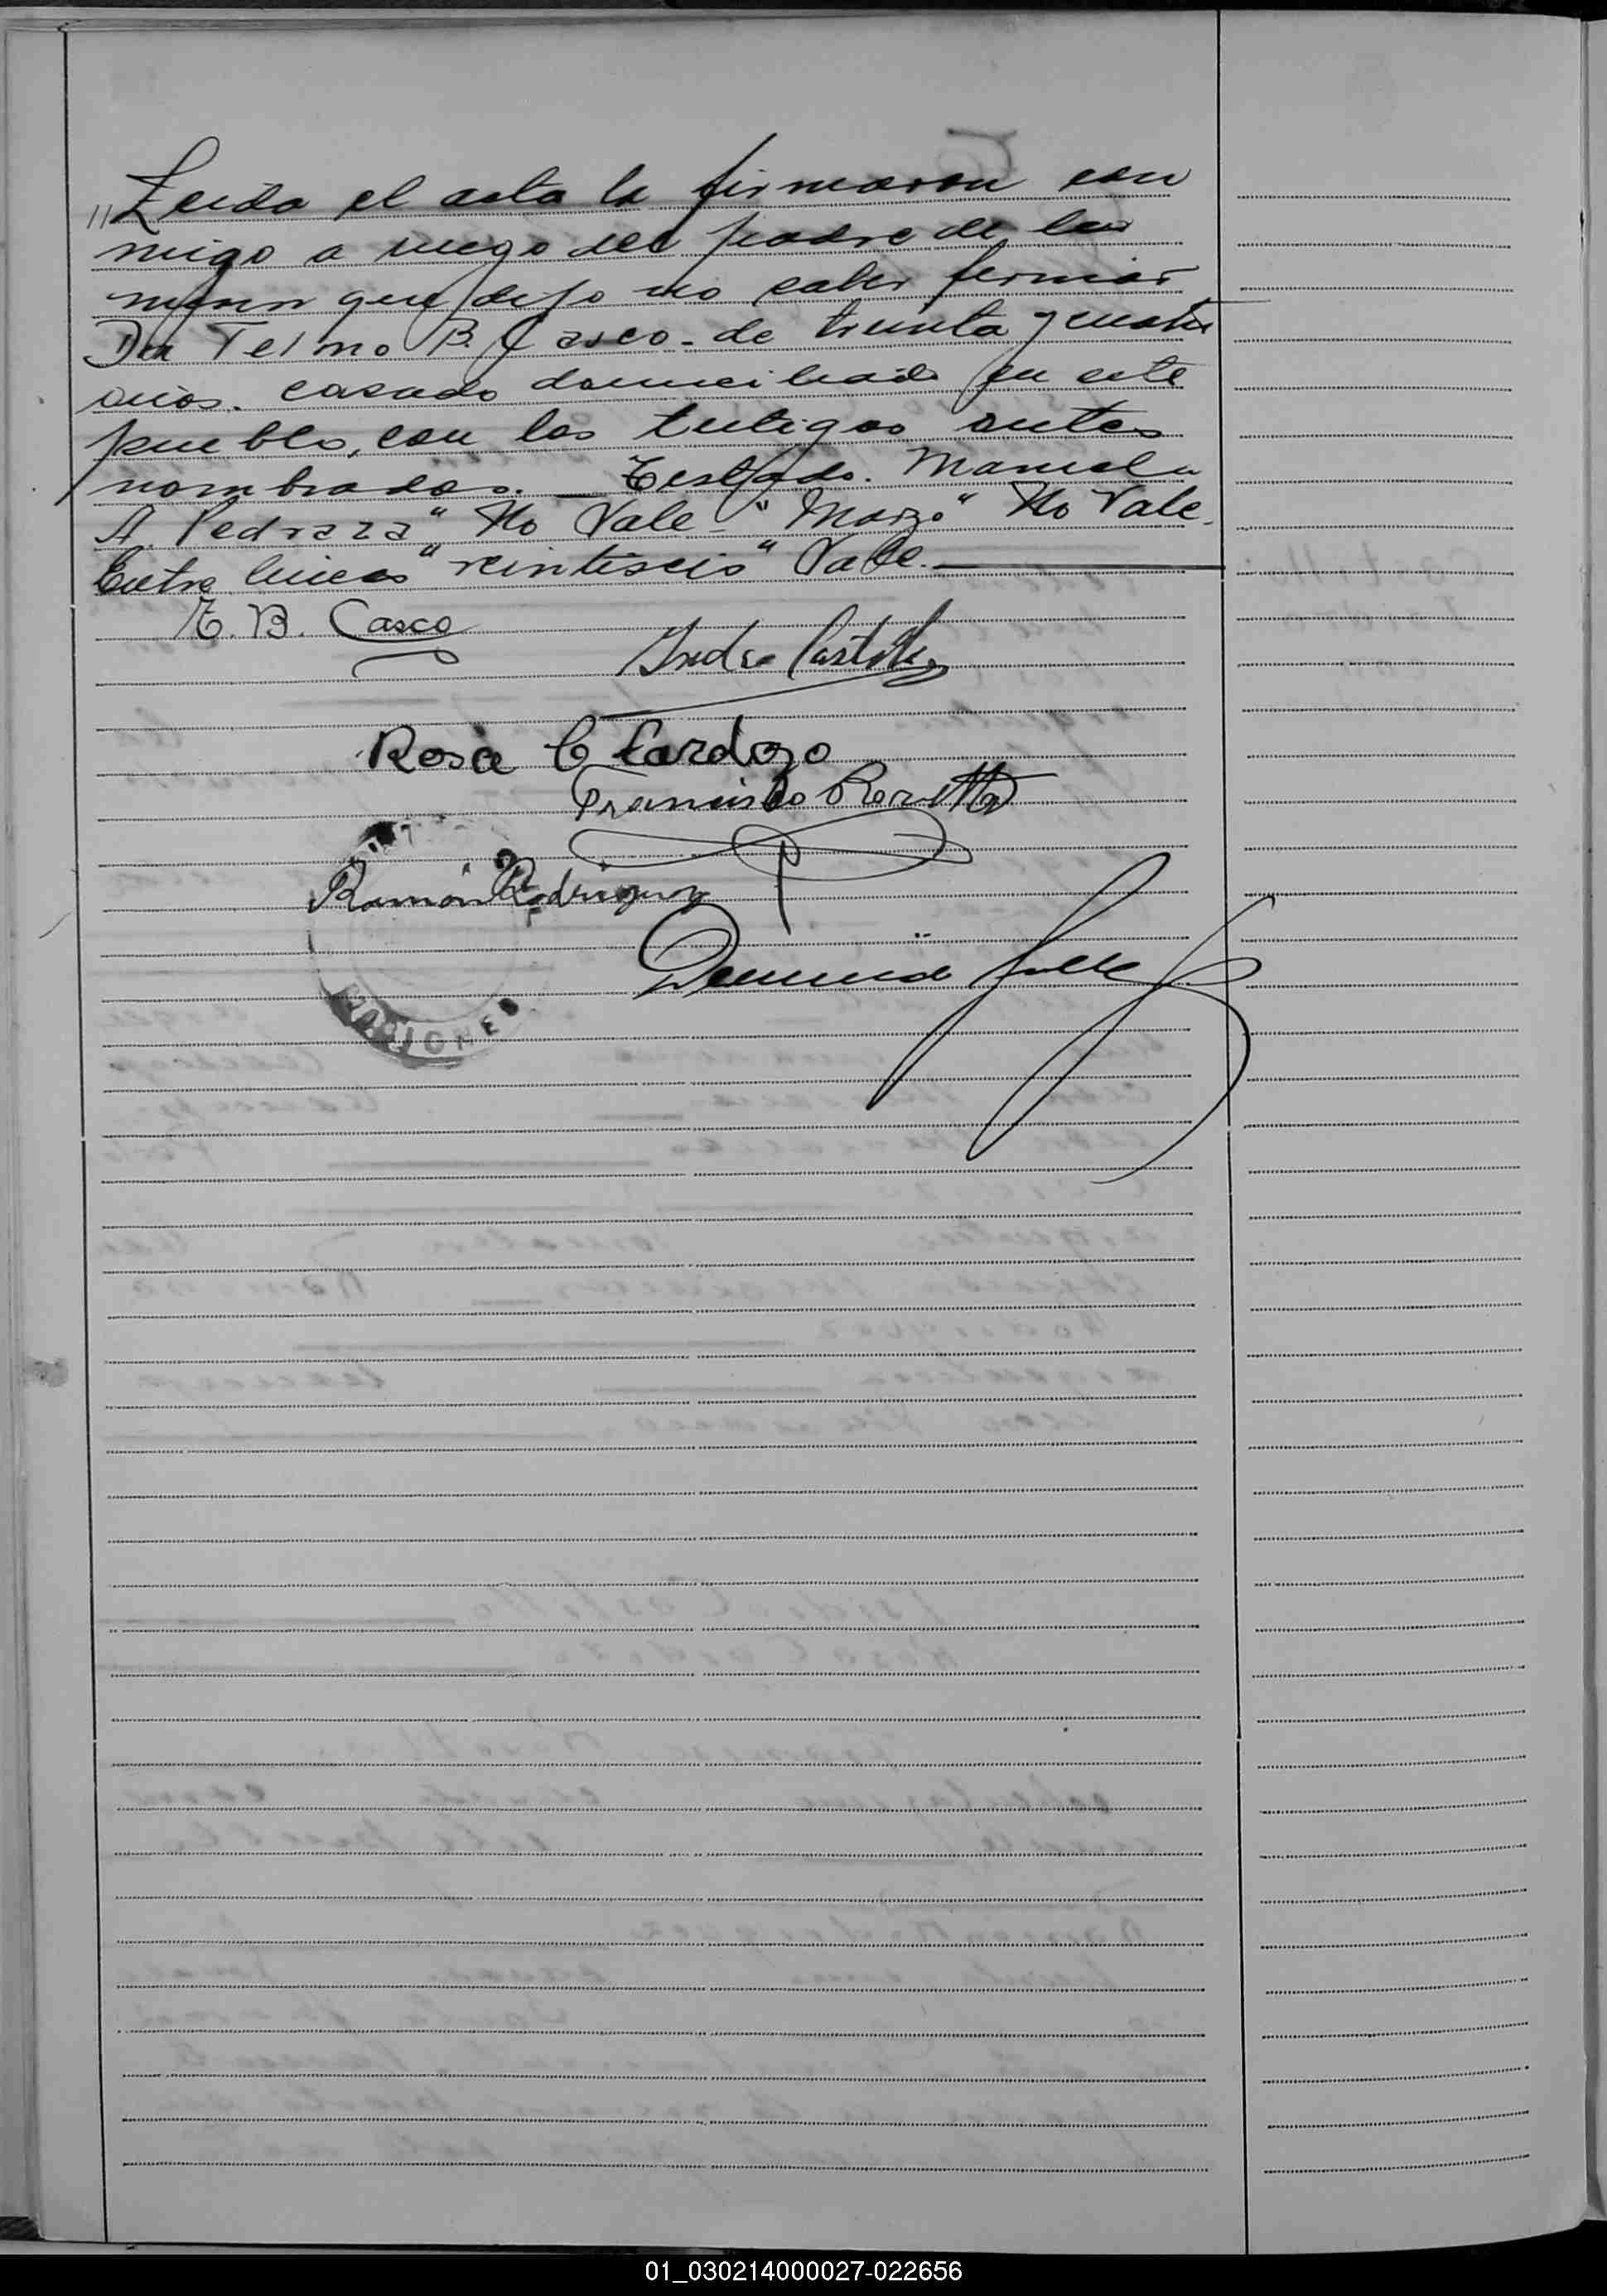 "Leida el acta la firmaron con
migo a ruego del padre de la
menor que dijo no saber firmar
Dn Telmo B. Casco - de treinta y cuatro
años. casado domiciliado en este
pueblo, con los testigos antes
nombrados. — Testado. Manuela
A. Pedraza" No Vale - "Marzo" No Vale.
Entre lineas "veintiseis" Vale. —
T. B. Casco
Isidro Castillo
Rosa C Cardozo
Francisco
Ramón Rodriguez
01_030214000027-022656